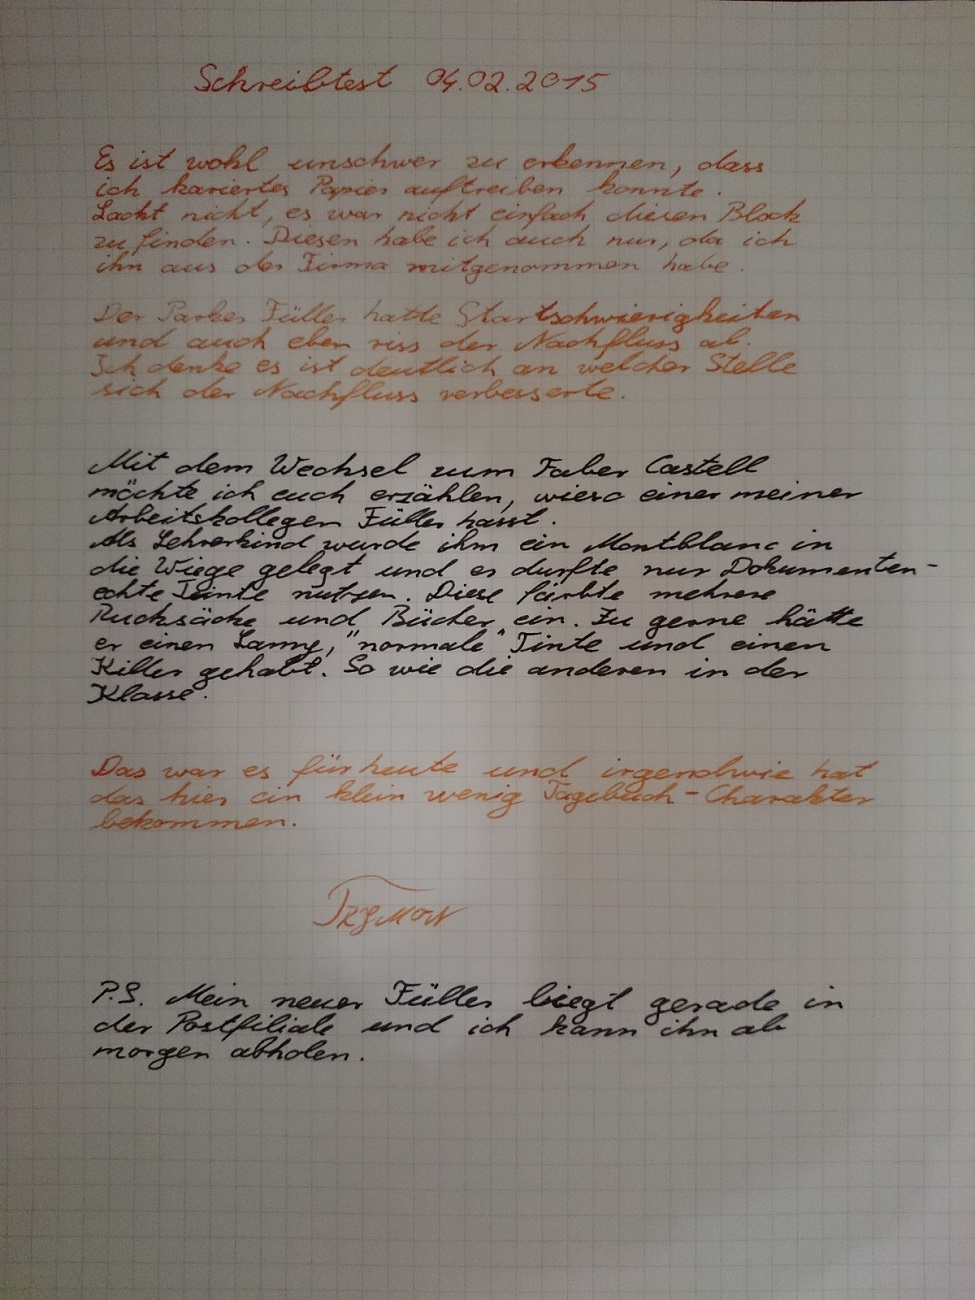 Schreibtest 04.02.2015
Es ist wohl unschwer zu erkennen, dass
ich kariertes Papier auftreiben konnte.
Lacht nicht, es war nicht einfach diesen Block
zu finden. Diesen habe ich auch nur, da ich
ihn aus der Firma mitgenommen habe.
Der Parker Füller hatte Startschwierigkeiten
und auch eben riss der Nachfluss ab.
Ich denke es ist deutlich an welcher Stelle
sich der Nachfluss verbesserte.
Mit dem Wechsel zum Faber Castell
möchte ich euch erzählen, wieso einer meiner
Arbeitskollegen Füller hasst.
Als Lehrerkind wurde ihm ein Montblanc in
die Wiege gelegt und er durfte nur Dokumenten-
echte Tinte nutzen. Diese färbte mehrere
Rucksäcke und Bücher ein. Zu gerne hätte
er einen Lamy, "normale" Tinte und einen
Killer gehabt. So wie die anderen in der
Klasse.
Das war es für heute und irgendwie hat
das hier ein klein wenig Tagebuch-Charakter
bekommen.
P.S. Mein neuer Füller liegt gerade in
der Postfiliale und ich kann ihn ab
morgen abholen.